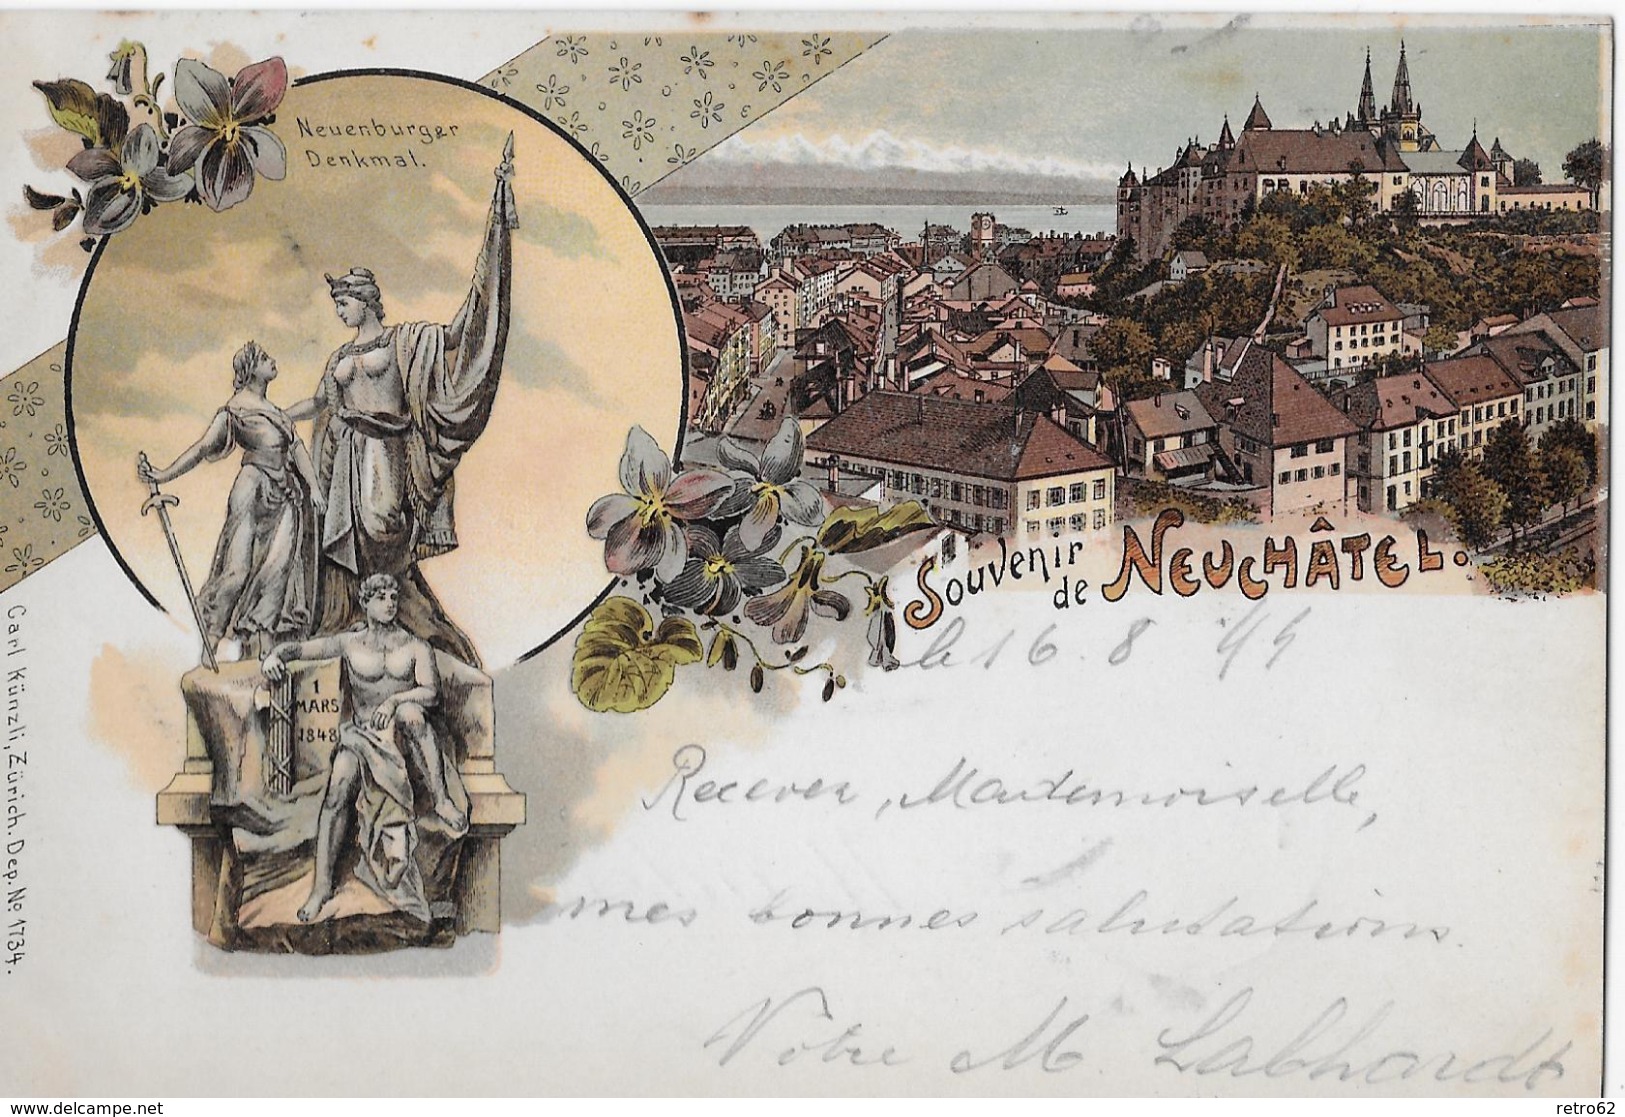 Neuenburger
Denkmal.
Souvenir
de NEUCHÂTEL.
le 16. 8
Recevez, Mademoiselle,
mes bonnes salutations.
Votre M. Labhardt
1
MARS
1848
Carl Künzli, Zürich. Dep. No. 1734.
delcampe.net
retro62